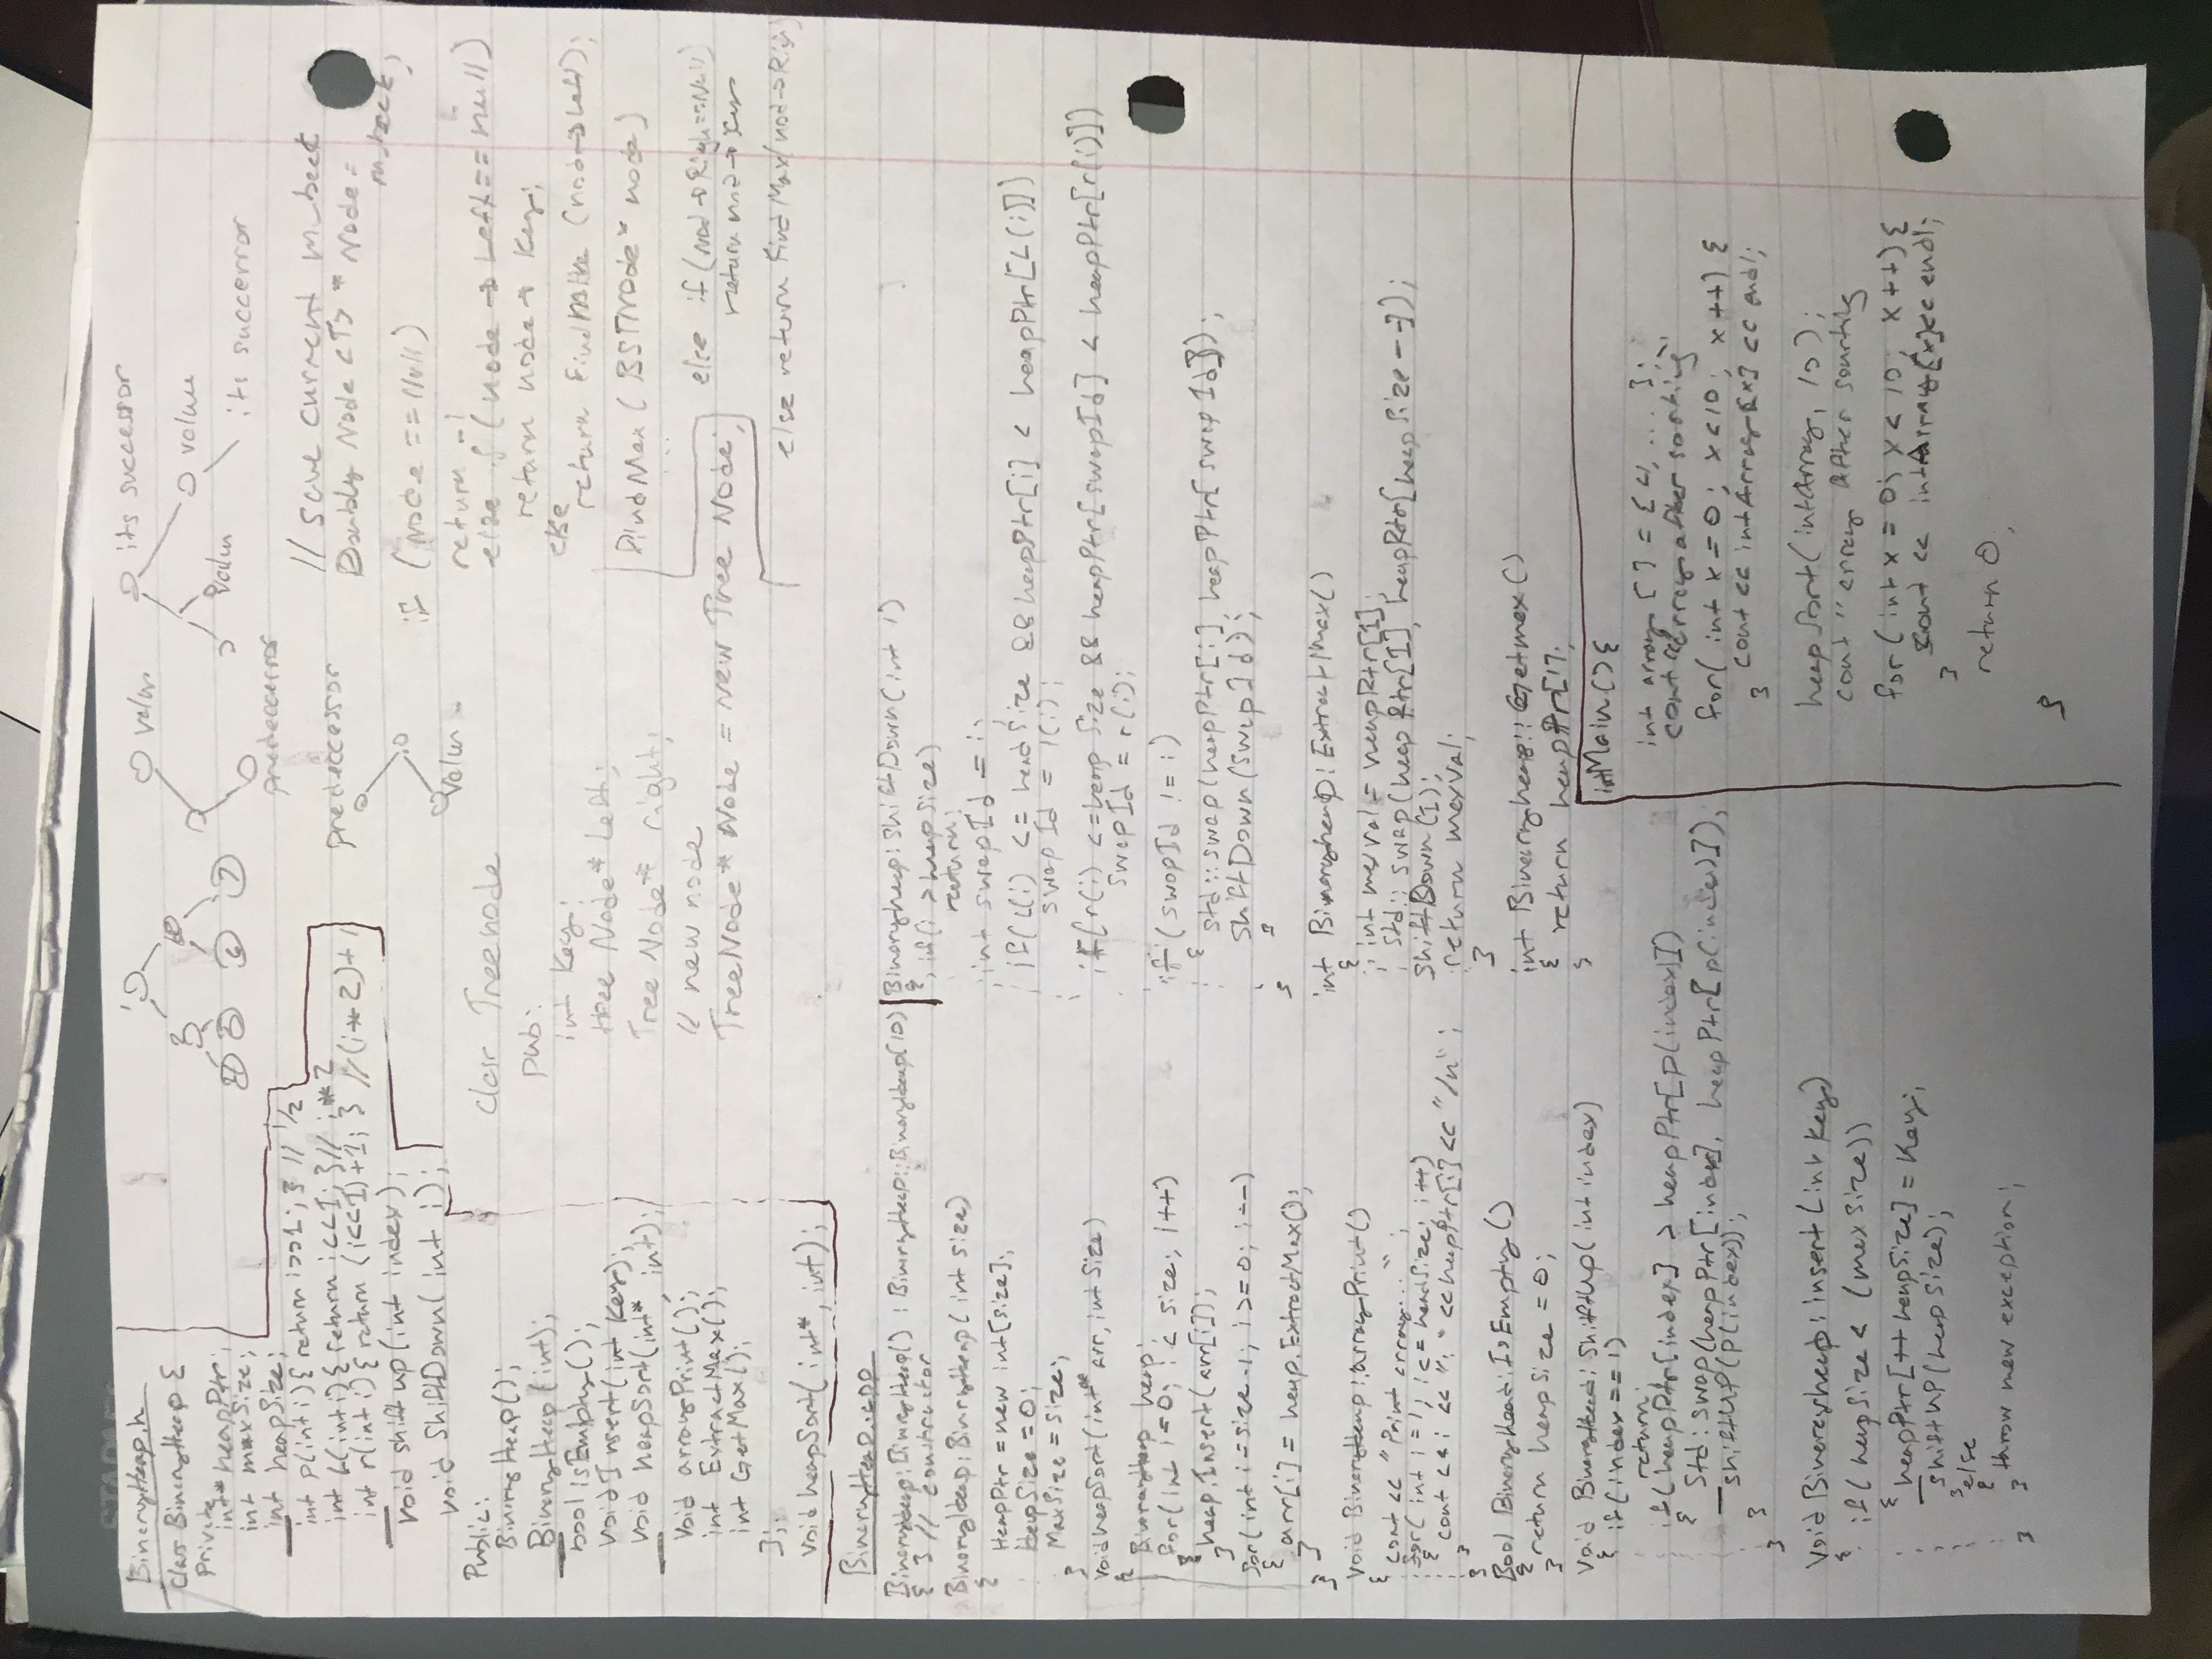 BinaryHeap.h
Class BinaryHeap {
Private
int* heapPtr;
int maxSize;
int heapSize;
int p(int i) { return i>>1; } // 1/2
int L(int i) { return i<<1; } // i*2
int r(int i) { return (i<<1)+1; } //(i*2)+1
void shiftup(int index);
void ShiftDown(int i);
Public:
BinaryHeap();
BinaryHeap(int);
bool isEmphy();
void Insert(int Key);
void heapSort(int*, int);
void arrayPrint();
int ExtractMax();
int GetMax();
};
void heapSort(int*, int);
1
3
7
value
predecerror
predeccessor
value
its successor
value
value
its successor
Clasr Treenode
pub:
int Key;
tree Node* Left;
Tree Node* right;
// new node
TreeNode* Node = new Tree Node;
// Save current m_beet
Doubly Node <T> * Node =
if (Node == Null)
return -1
else if (node → Left == null)
return node → Key;
else
return Find (nod→Left);
FindMax (BSTnode* node)
else if (Nod→Righ==Null)
return nod→Key
else return FindMax(nod→Righ)
BinaryHeap.cpp
BinaryHeap::BinaryHeap() : BinaryHeap::BinaryHeap(10)
{ } // constructor
BinaryHeap::BinaryHeap(int size)
{
HeapPtr = new int[size];
HeapSize = 0;
MaxSize = size;
}
void heapSort(int* arr, int Size)
{
BinaryHeap heap;
for(int i = 0; i < size; i++)
{
heap.Insert(arr[i]);
}
for(int i = size-1; i>=0; i--)
{
arr[i] = heap.ExtractMax();
}
}
void BinaryHeap::arrayPrint()
{ cout << "Print array..."
for(int i = 1; i <= headSize; i++)
{ cout << i << ": " << heapPtr[i] << "/n";
}
}
Bool BinaryHeap::IsEmpty()
{
return heapSize = 0;
}
void BinaryHeap::ShiftUp(int index)
{ if(index == 1)
return
if(heapPtr[index] > heapPtr[p(index)])
{
Std::swap(heapPtr[index], heapPtr[p(index)]);
shiftUp(p(index));
}
}
Void Binaryheap::insert(int Key)
{ if(heapSize < (maxsize))
{
heapPtr[++heapSize] = Key;
shiftUp(heapSize);
}
else
{
throw new exception;
}
}
Binaryheap::ShiftDown(int i)
{ if(i > heapSize)
return;
int swapId = i;
if(L(i) <= headSize && heapPtr[i] < heapPtr[L(i)])
swapId = l(i);
if(r(i) <= heap Size && heapPtr[swapId] < heapPtr[r(i)])
swapId = r(i);
if(swapId != i)
{
std::swap(heapPtr[i], heapPtr[swapId]);
ShiftDown(swapId);
}
}
int Binaryheap::ExtractMax()
{
int maxVal = heapPtr[1];
Std::swap(heapPtr[1], heapPtr[heapSize--]);
ShiftDown(1);
return maxVal;
}
int Binaryheap::Getmax()
{
return heapPtr[1];
}
int Main() {
int array [] = {4, ... };
cout << "array after sorting";
for( int x = 0; x<10; x++) {
cout << intArray[x] << endl;
}
heapSort(intArray, 10);
cout "array after sourting
for(int x = 0; x < 10; x++) {
cout << intArray[x]<< endl;
}
return 0;
}